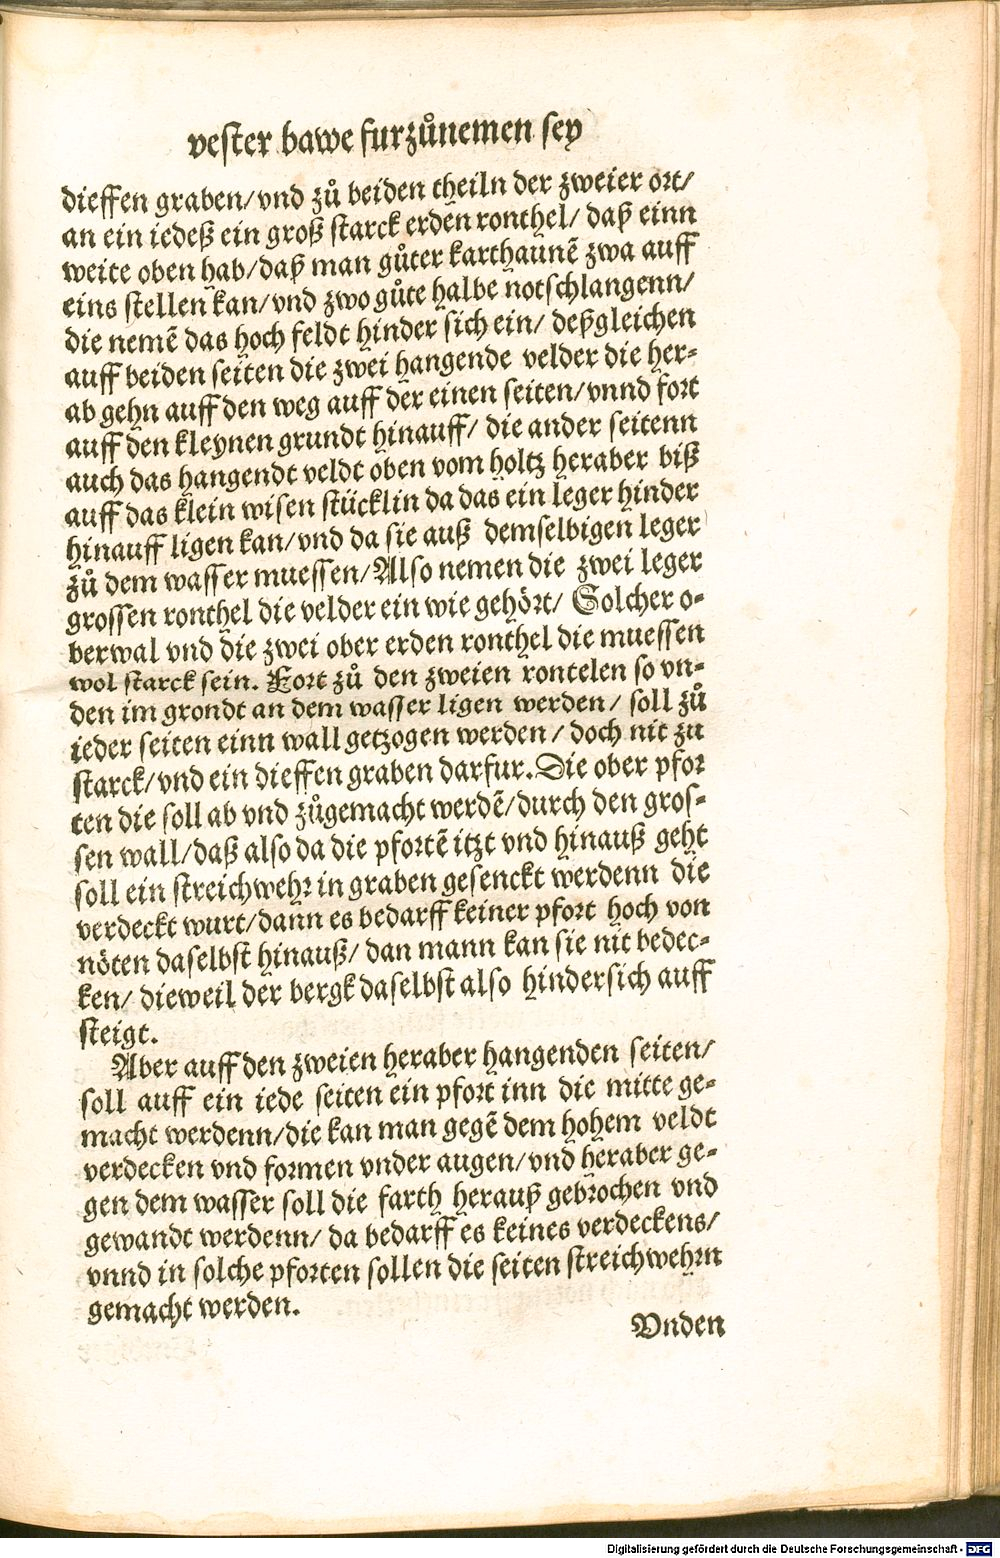 vester bawe furzůnemen sey
dieffen graben/vnd zů beiden theiln der zweier ort/
an ein iedeß ein groß starck erden ronthel/ daß einn
weite oben hab/daß man gůter karthaunē zwa auff
eins stellen kan/vnd zwo gůte halbe notschlangenn/
die nemē das hoch feldt hinder sich ein/ deßgleichen
auff beiden seiten die zwei hangende velder die her-
ab gehn auff den weg auff der einen seiten/vnnd fort
auff den kleynen grundt hinauff/ die ander seitenn
auch das hangendt veldt oben vom holtz heraber biß
auff das klein wisen stücklin da das ein leger hinder
hinauff ligen kan/vnd da sie auß demselbigen leger
zů dem wasser muessen/Also nemen die zwei leger
grossen ronthel die velder ein wie gehört/ Solcher o-
berwal vnd die zwei ober erden ronthel die muessen
wol starck sein. Fort zů den zweien rontelen so vn-
den im grondt an dem wasser ligen werden/ soll zů
ieder seiten einn wall getzogen werden/ doch nit zu
starck/vnd ein dieffen graben darfur. Die ober pfor
ten die soll ab vnd zůgemacht werdē/durch den gros-
sen wall/daß also da die pfortē itzt vnd hinauß geht
soll ein streichwehr in graben gesenckt werdenn die
verdeckt wurt/dann es bedarff keiner pfort hoch von
nöten daselbst hinauß/ dan mann kan sie nit bedec-
ken/ dieweil der bergk daselbst also hindersich auff
steigt.
Aber auff den zweien heraber hangenden seiten/
soll auff ein iede seiten ein pfort inn die mitte ge-
macht werdenn/die kan man gegē dem hohem veldt
verdecken vnd formen vnder augen/vnd heraber ge-
gen dem wasser soll die farth herauß gebrochen vnd
gewandt werdenn/ da bedarff es keines verdeckens/
vnnd in solche pforten sollen die seiten streichwehrn
gemacht werden.
Vnden
Digitalisierung gefördert durch die Deutsche Forschungsgemeinschaft - DFG